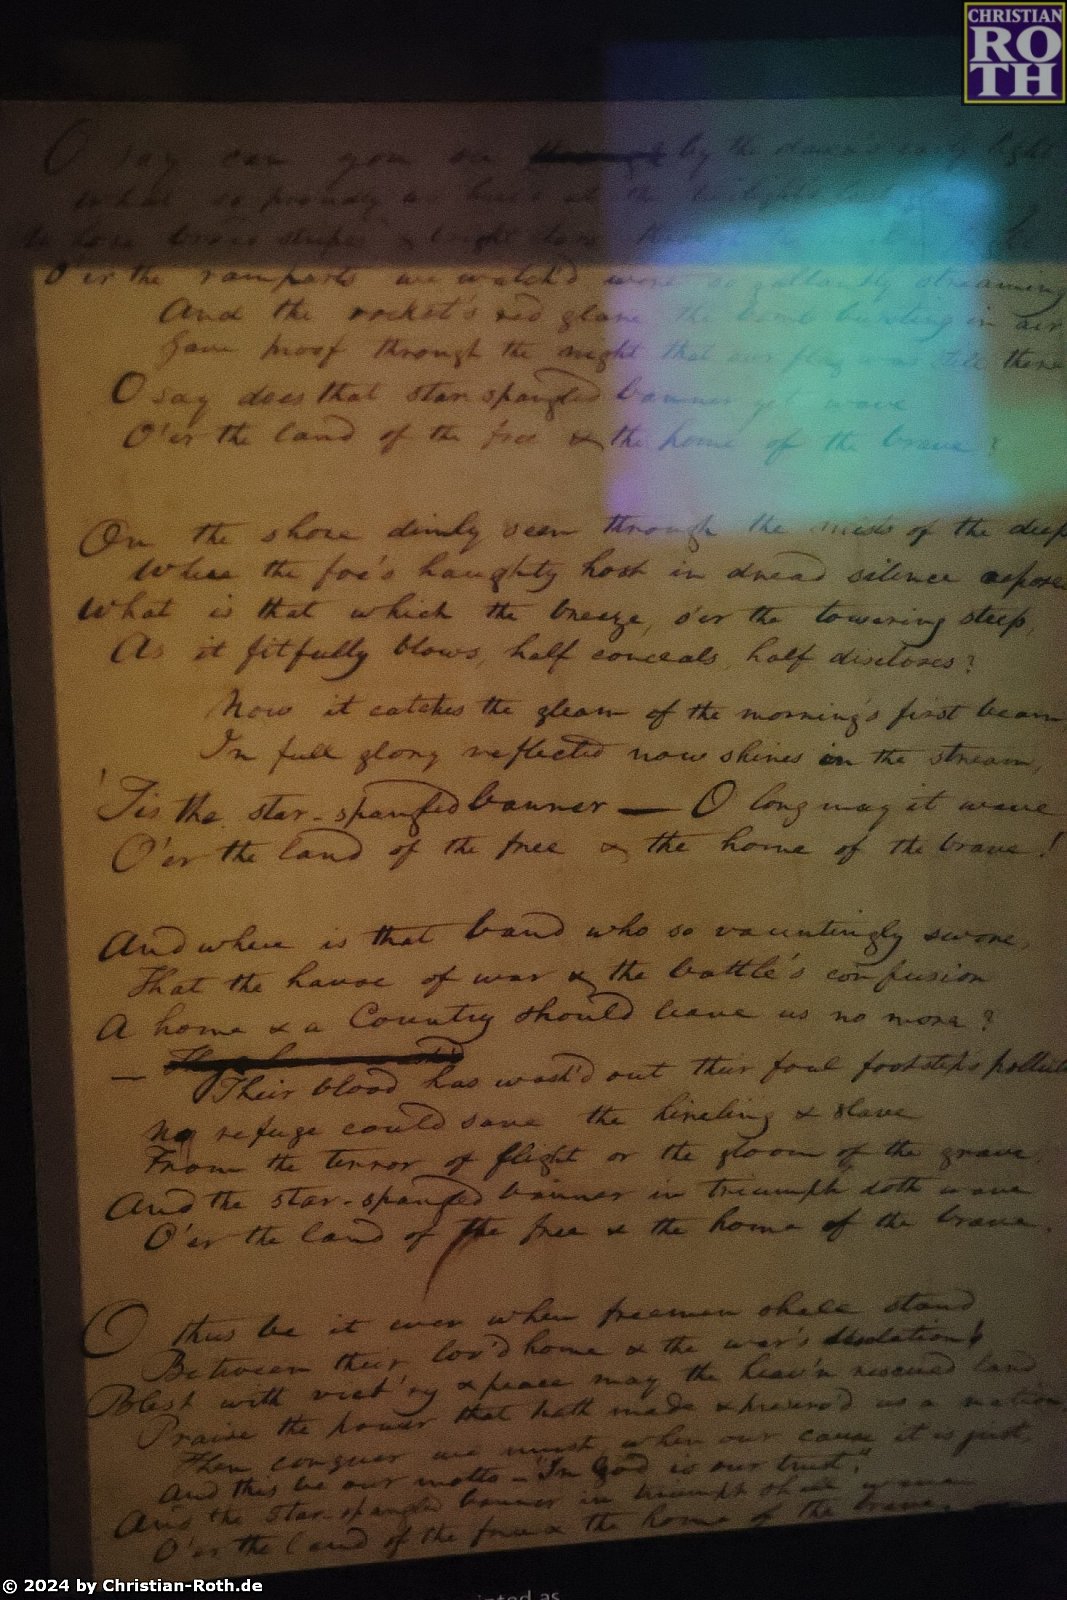 CHRISTIAN
RO
TH
O say can you see by the dawn's early light
What so proudly we hail'd at the twilight's last
broad stripes & bright stars through the
O'er the ramparts we watch'd were so gallantly streaming
And the rocket's red glare the bomb bursting in air
Gave proof through the night that our flag was still there
O say does that star spangled banner yet wave
O'er the land of the free & the home of the brave?
On the shore dimly seen through the mists of the deep
Where the foe's haughty host in dread silence reposes
What is that which the breeze, o'er the towering steep,
As it fitfully blows, half conceals, half discloses?
Now it catches the gleam of the morning's first beam,
In full glory reflected now shines in the stream,
'Tis the star-spangled banner — O long may it wave
O'er the land of the free & the home of the brave!
And where is that band who so vauntingly swore,
That the havoc of war & the battle's confusion
A home & a Country should leave us no more?
— Their blood has wash'd out their foul footsteps pollut
No refuge could save the hireling & slave
From the terror of flight or the gloom of the grave,
And the star-spangled banner in triumph doth wave
O'er the land of the free & the home of the brave.
O thus be it ever when freemen shall stand
Between their lov'd home & the war's desolation!
Blest with vict'ry & peace may the heav'n rescued land
Praise the power that hath made & preserv'd us a nation
Then conquer we must, when our cause it is just,
And this be our motto - "In God is our trust,"
And the star-spangled banner in triumph shall wave
O'er the land of the free & the home of the brave.
© 2024 by Christian-Roth.de
as